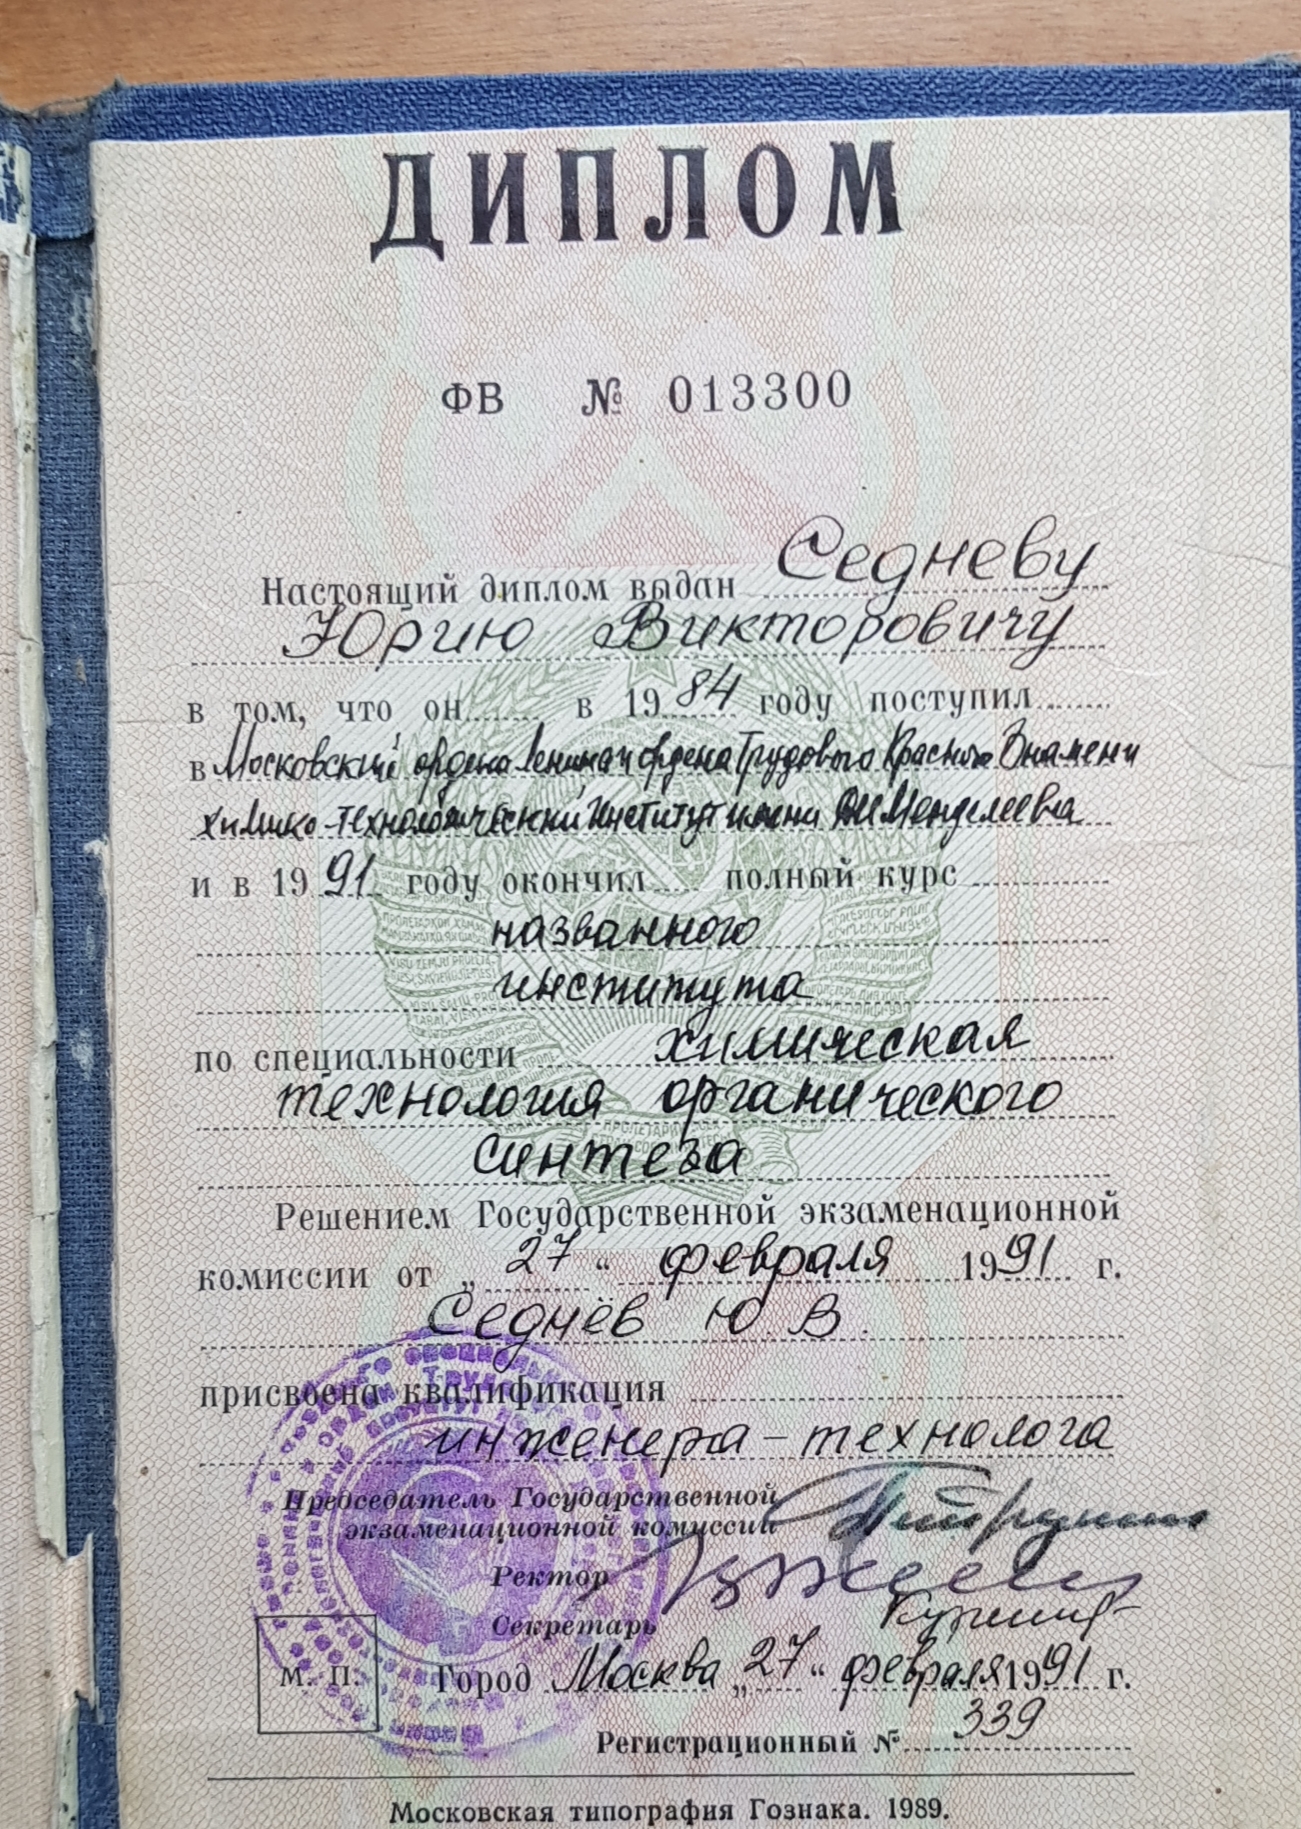 ДИПЛОМ
ФВ № 013300
Настоящий диплом выдан Седневу
Юрию Викторовичу
в том, что он в 1984 году поступил
в Московский ордена Ленина и ордена Трудового Красного Знамени
химико-технологический институт имени Д.И.Менделеева
и в 1991 году окончил полный курс
названного
института
по специальности химическая
технология органического
синтеза
Решением Государственной экзаменационной
комиссии от „27“ февраля 1991 г.
Седнёв Ю. В.
присвоена квалификация
инженера-технолога
Председатель Государственной
экзаменационной комиссии
Ректор
Секретарь
М. П. Город Москва „27“ февраля 1991 г.
Регистрационный № 339
Московская типография Гознака. 1989.